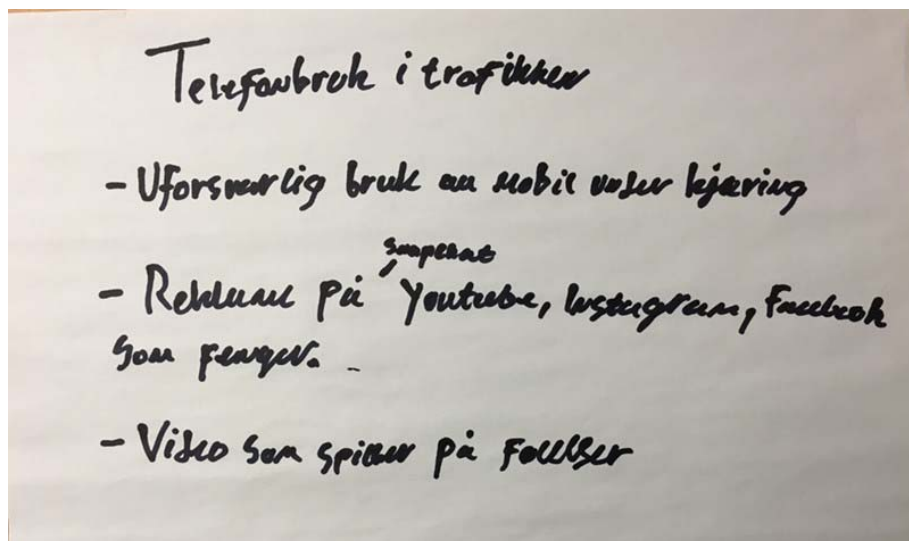 Telefonbruk i trafikken
- Uforsvarlig bruk av mobil under kjøring
snapchat
- Reklame på Youtube, Instagram, Facebook
som fenger.
- Video som spiller på følelser